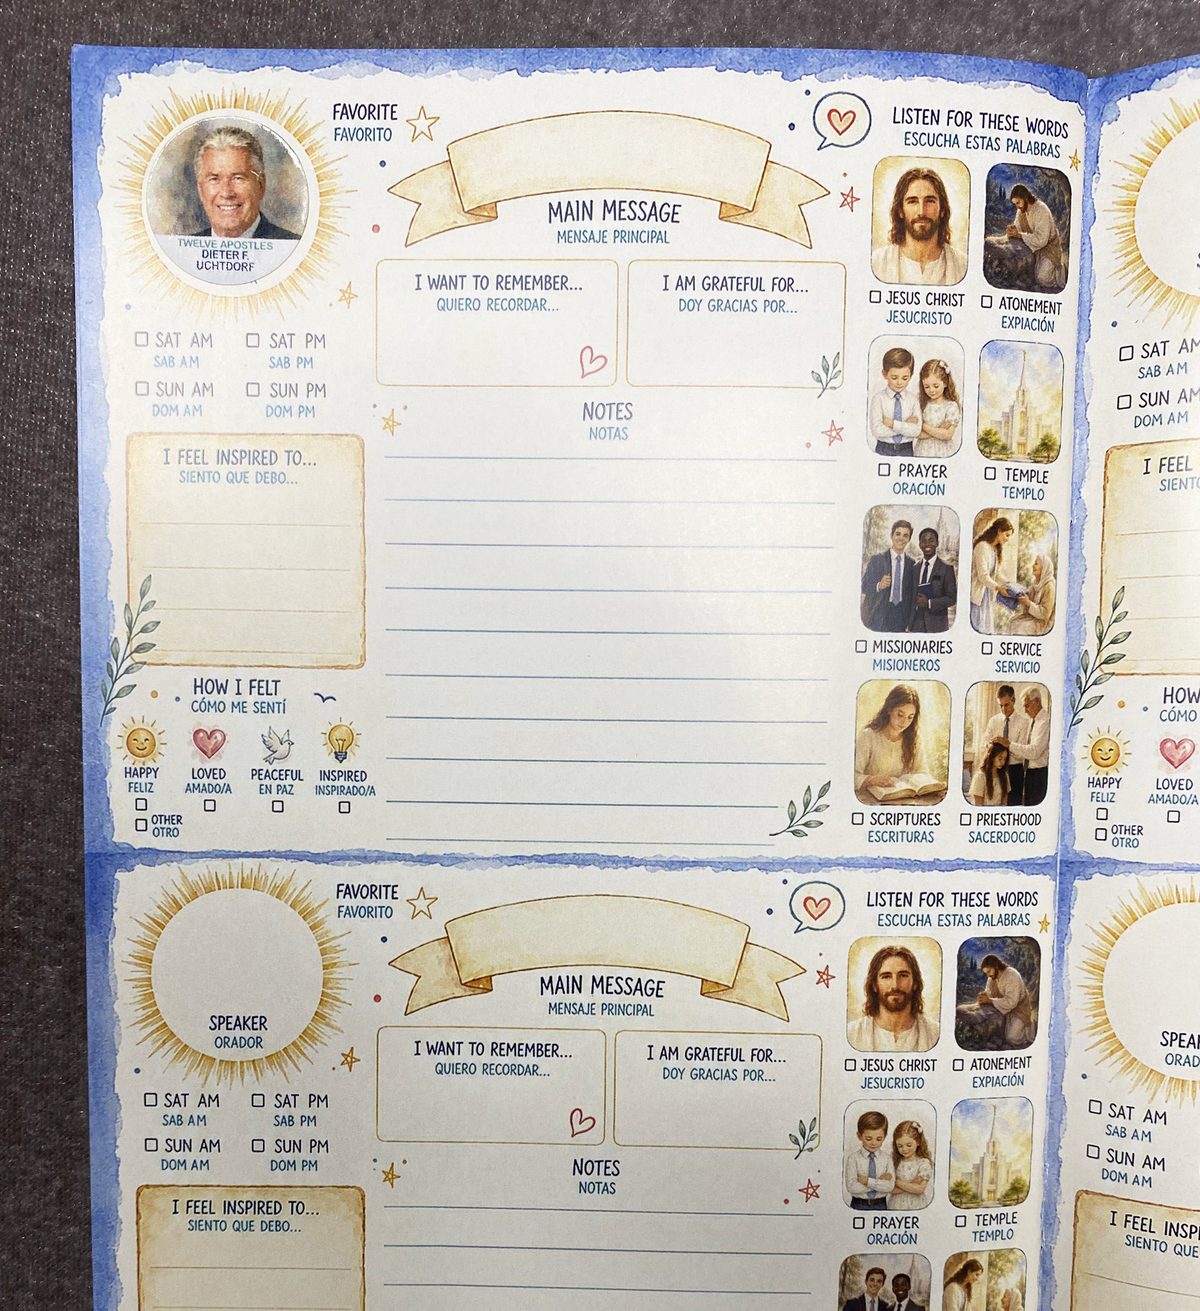 TWELVE APOSTLES
DIETER F.
UCHTDORF
FAVORITE
FAVORITO
MAIN MESSAGE
MENSAJE PRINCIPAL
LISTEN FOR THESE WORDS
ESCUCHA ESTAS PALABRAS
I WANT TO REMEMBER...
QUIERO RECORDAR...
I AM GRATEFUL FOR...
DOY GRACIAS POR...
JESUS CHRIST
JESUCRISTO
ATONEMENT
EXPIACIÓN
SAT AM
SAB AM
SAT PM
SAB PM
SUN AM
DOM AM
SUN PM
DOM PM
NOTES
NOTAS
I FEEL INSPIRED TO...
SIENTO QUE DEBO...
PRAYER
ORACIÓN
TEMPLE
TEMPLO
MISSIONARIES
MISIONEROS
SERVICE
SERVICIO
HOW I FELT
CÓMO ME SENTÍ
HAPPY
FELIZ
LOVED
AMADO/A
PEACEFUL
EN PAZ
INSPIRED
INSPIRADO/A
OTHER
OTRO
SCRIPTURES
ESCRITURAS
PRIESTHOOD
SACERDOCIO
SAT AM
SAB AM
SUN AM
DOM AM
I FEEL
HOW
CÓMO
HAPPY
FELIZ
LOVED
AMADO/A
OTHER
OTRO
SPEAKER
ORADOR
FAVORITE
FAVORITO
MAIN MESSAGE
MENSAJE PRINCIPAL
LISTEN FOR THESE WORDS
ESCUCHA ESTAS PALABRAS
I WANT TO REMEMBER...
QUIERO RECORDAR...
I AM GRATEFUL FOR...
DOY GRACIAS POR...
JESUS CHRIST
JESUCRISTO
ATONEMENT
EXPIACIÓN
SAT AM
SAB AM
SAT PM
SAB PM
SUN AM
DOM AM
SUN PM
DOM PM
NOTES
NOTAS
I FEEL INSPIRED TO...
SIENTO QUE DEBO...
PRAYER
ORACIÓN
TEMPLE
TEMPLO
SAT AM
SAB AM
SUN AM
DOM AM
I FEEL
SIENTO QUE